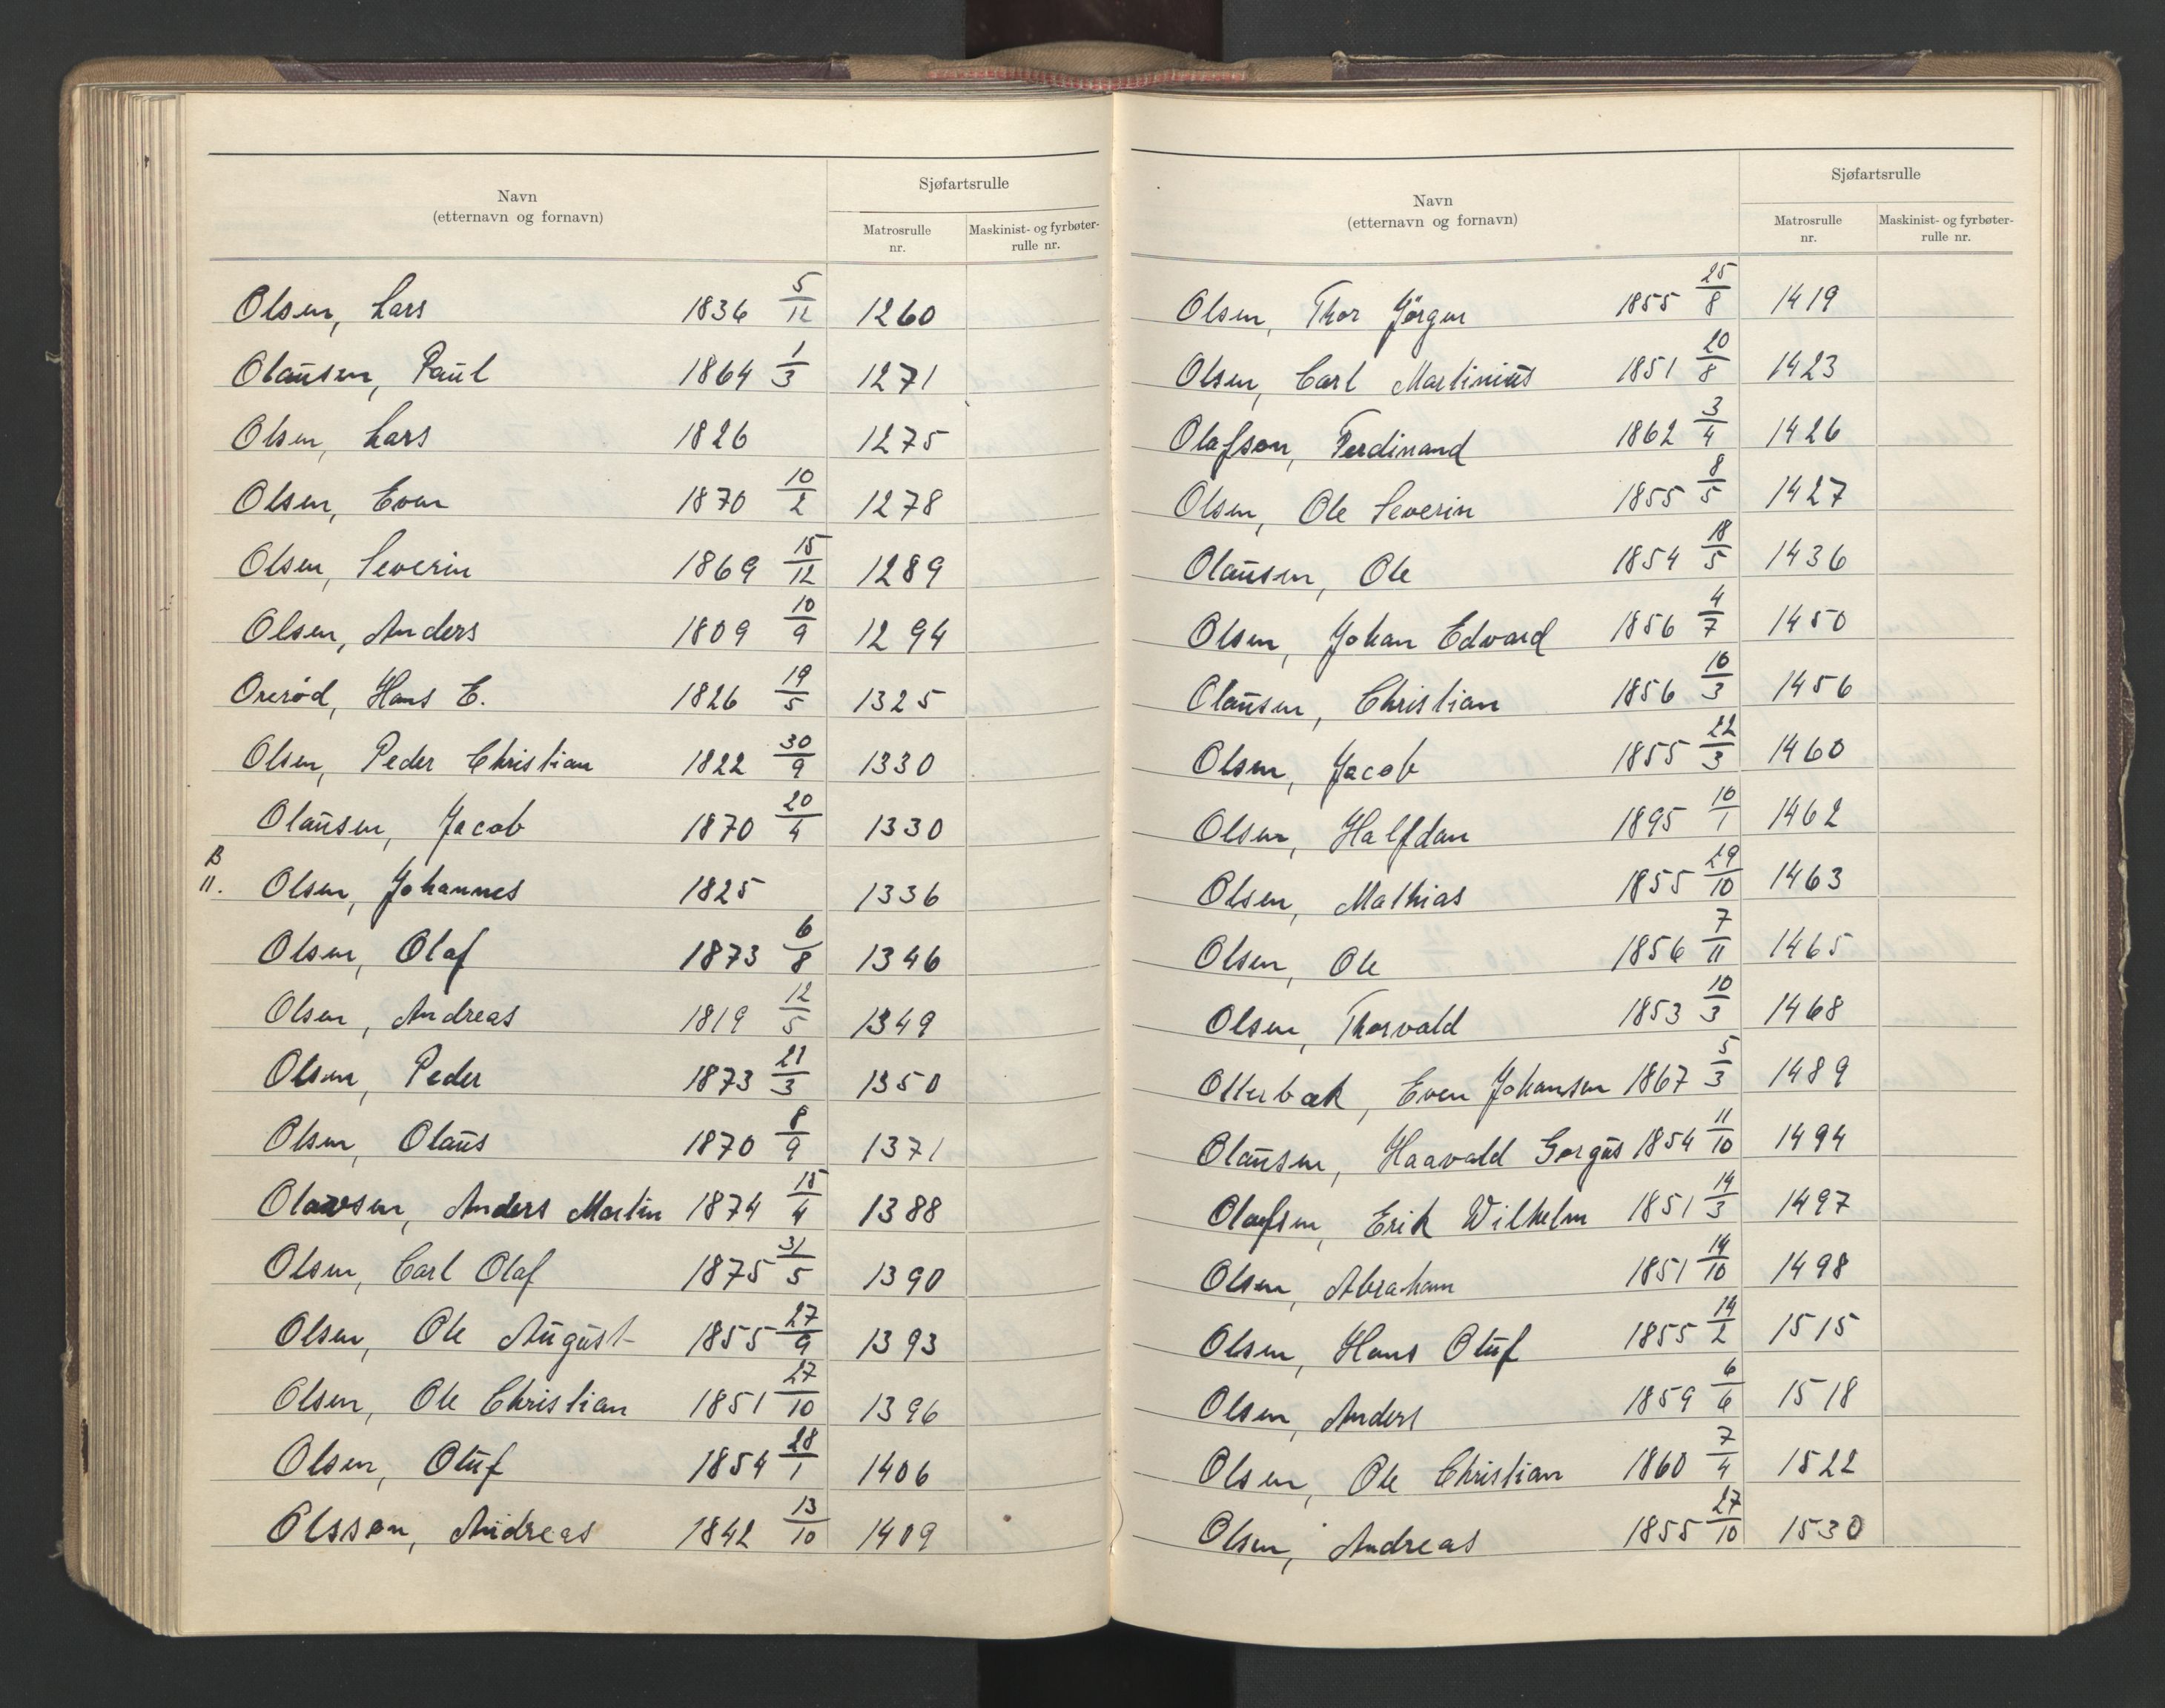 Navn
(etternavn og fornavn)
Sjøfartsrulle
Matrosrulle nr.
Maskinist- og fyrbøter-rulle nr.
Olsen, Lars 1836 5/12 1260
Olausen, Paul 1864 1/3 1271
Olsen, Lars 1826 1275
Olsen, Even 1870 10/2 1278
Olsen, Severin 1869 15/12 1289
Olsen, Anders 1809 10/9 1294
Orerød, Hans E. 1826 19/5 1325
Olsen, Peder Christian 1822 30/9 1330
Olausen, Jacob 1870 20/4 1330
B 11. Olsen, Johannes 1825 1336
Olsen, Olaf 1873 6/8 1346
Olsen, Andreas 1819 12/5 1349
Olsen, Peder 1873 21/3 1350
Olsen, Olaus 1870 8/9 1371
Olavsen, Anders Martin 1874 15/4 1388
Olsen, Carl Olaf 1875 31/5 1390
Olsen, Ole August 1855 27/9 1393
Olsen, Ole Christian 1851 27/10 1396
Olsen, Oluf 1854 28/1 1406
Olsson, Andreas 1842 13/10 1409
Navn
(etternavn og fornavn)
Sjøfartsrulle
Matrosrulle nr.
Maskinist- og fyrbøter-rulle nr.
Olsen, Thor Jörgen 1855 25/8 1419
Olsen, Carl Martinius 1851 20/8 1423
Olafson, Ferdinand 1862 3/4 1426
Olsen, Ole Severin 1855 8/5 1427
Olausen, Ole 1854 18/5 1436
Olsen, Johan Edvard 1856 4/7 1450
Olausen, Christian 1856 16/3 1456
Olsen, Jacob 1855 22/3 1460
Olsen, Halfdan 1895 10/1 1462
Olsen, Mathias 1855 29/10 1463
Olsen, Ole 1856 7/11 1465
Olsen, Thorvald 1853 10/3 1468
Otterbæk, Even Johansen 1867 5/3 1489
Olausen, Haavald Gorgus 1854 11/10 1494
Olafsen, Erik Wilhelm 1851 14/3 1497
Olsen, Abraham 1851 14/10 1498
Olsen, Hans Oluf 1855 14/2 1515
Olsen, Anders 1859 6/6 1518
Olsen, Ole Christian 1860 7/4 1522
Olsen, Andreas 1855 27/10 1530